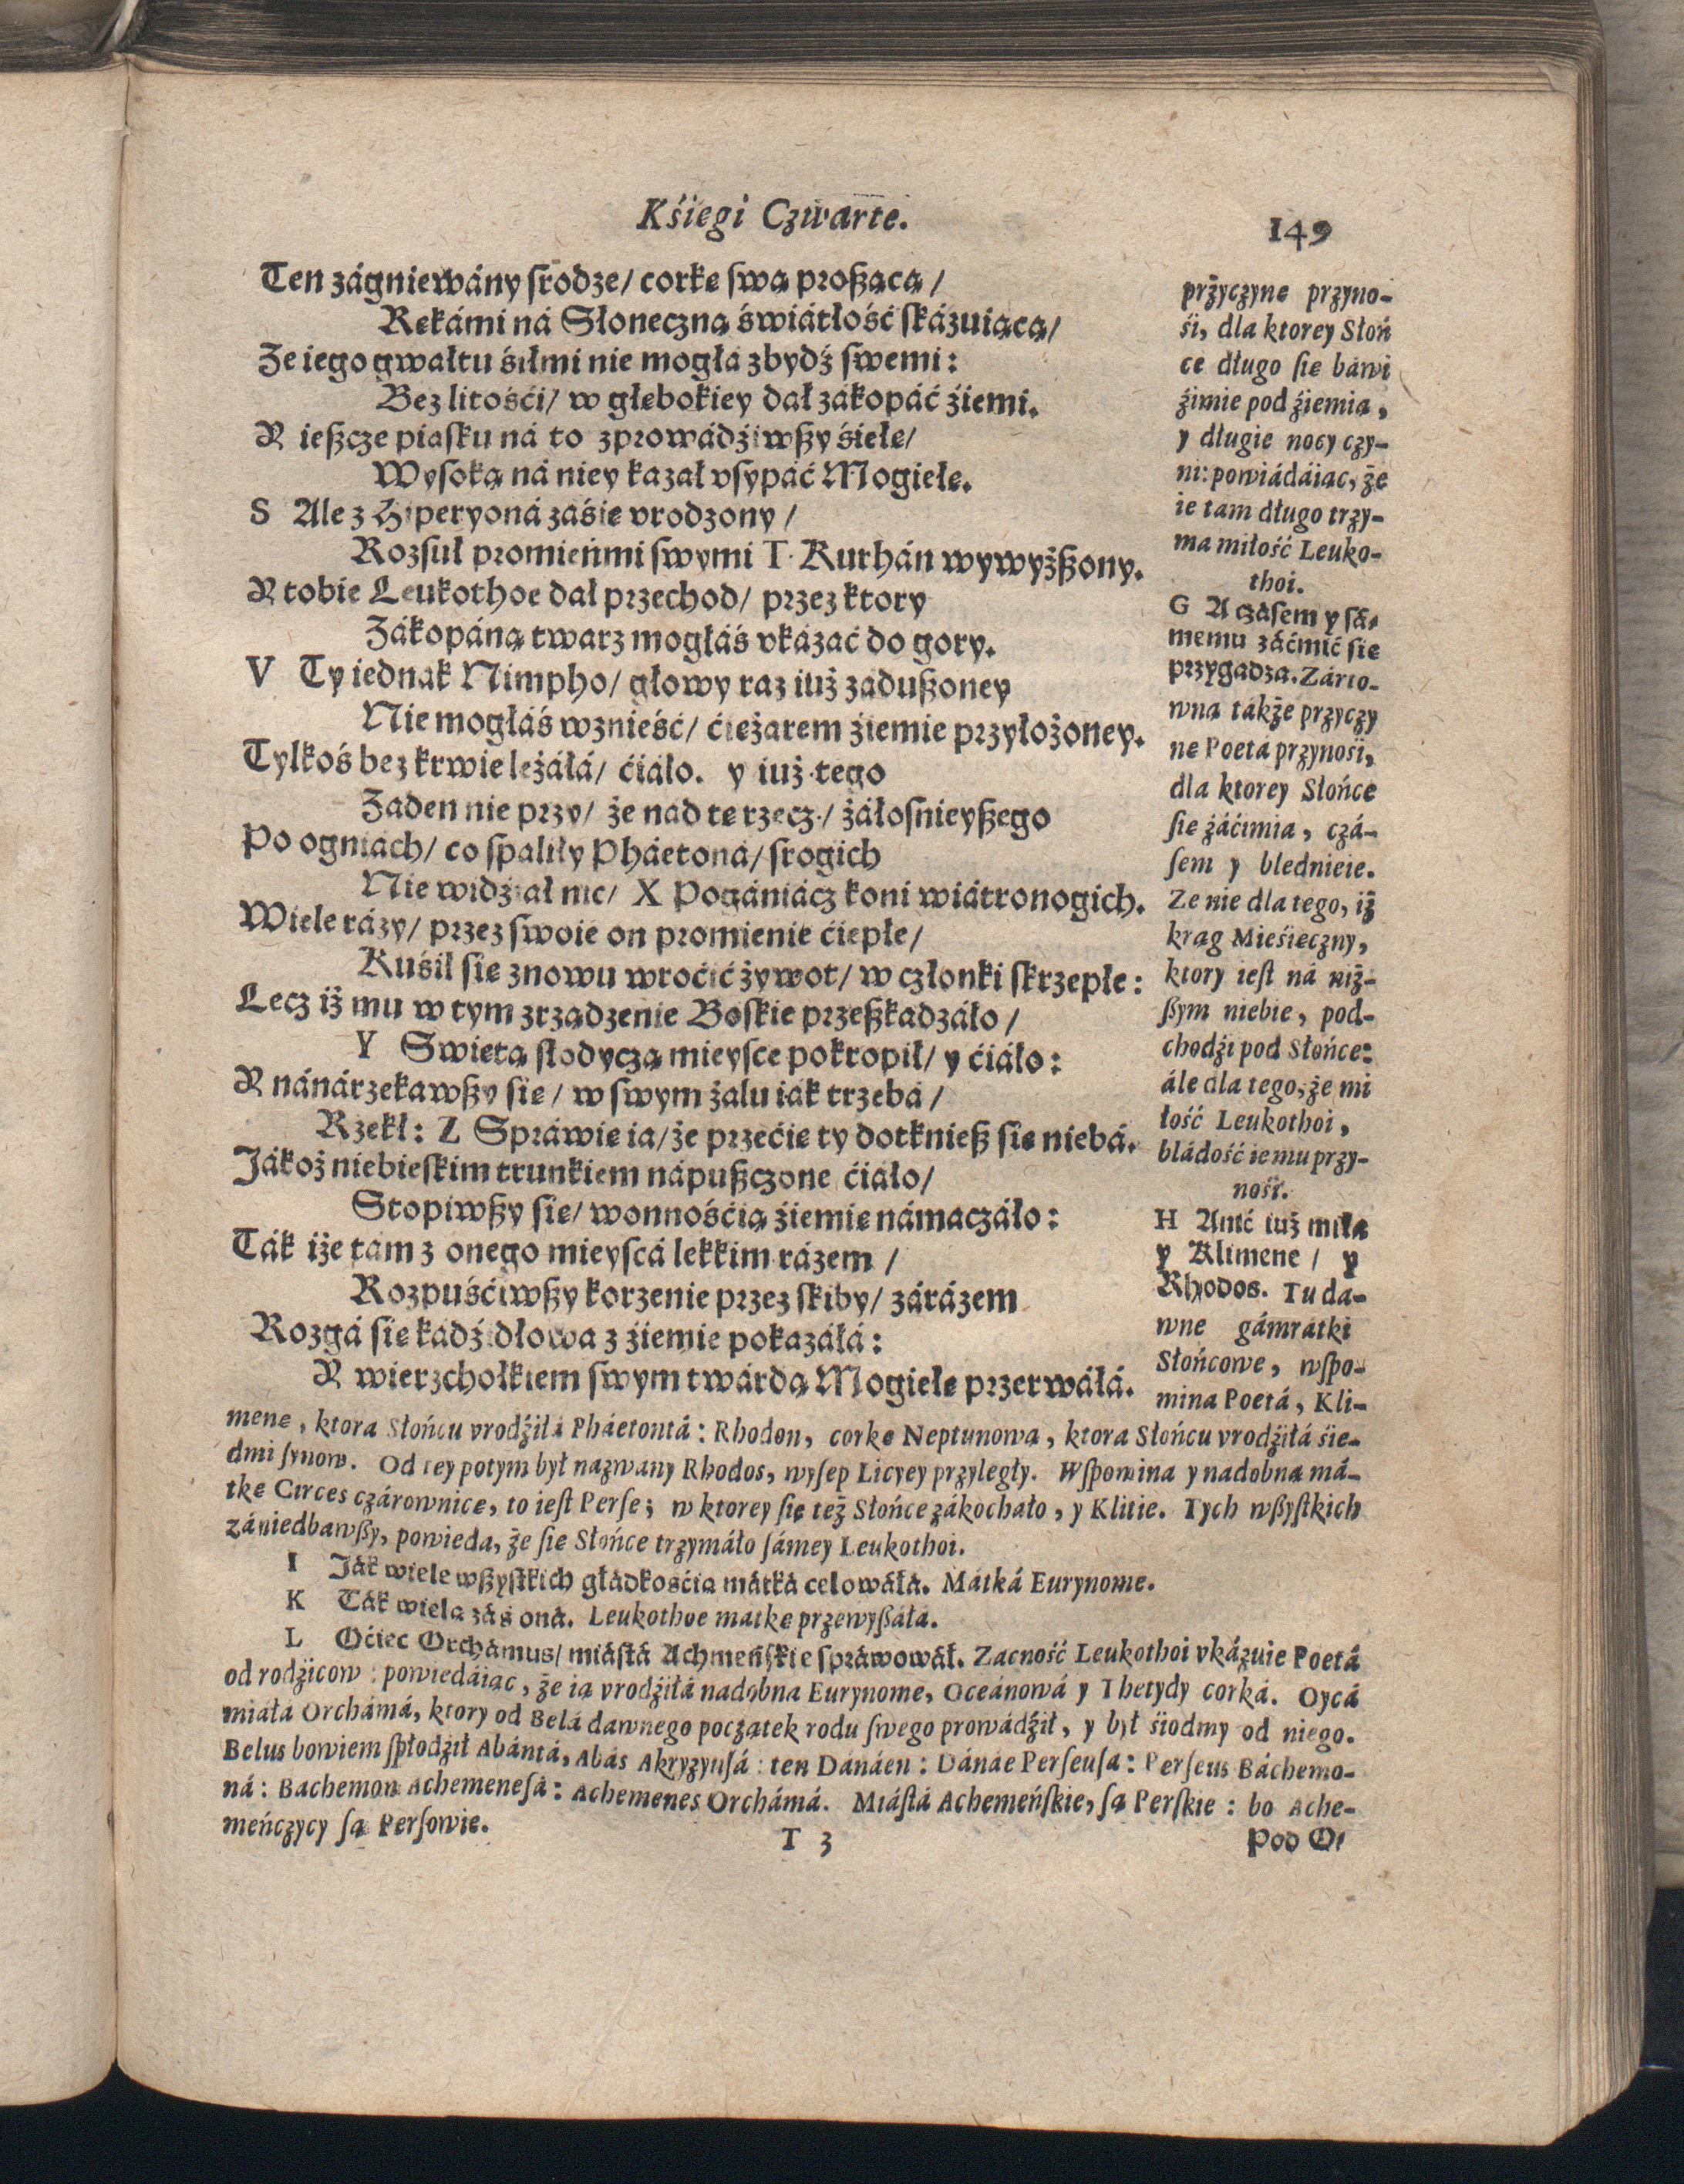 Kśięgi Czwarte.
149
Ten zágniewány srodze/ corkę swą proszącą/
Rękámi ná Słoneczną światłość skázuiącą/
Ze iego gwałtu śiłmi nie mogłá zbydź swemi:
Bez litośći/ w głębokiey dał zákopáć źiemi.
R ieszcze piasku ná to zprowádźiwszy śiełe/
Wysoką ná niey kazał vsypáć Mogiełę.
S Ale z Hiperyoná záśię vrodzony/
Rozsuł promieńmi swymi T Kurhán wywyższony.
R tobie Leukothoe dał przechod/ przez ktory
Zákopáną twarz mogłáś vkázać do gory.
V Ty iednak Nimpho/ głowy raz iuż zaduszoney
Nie mogłáś wznieść/ ćiężarem źiemie przyłożoney.
Tylkoś bez krwie leżáłá/ ćiáło. y iuż tego
Zaden nie przy/ że nad tę rzecz/ żáłosnieyszego
Po ogniach/ co spaliły Pháetoná/ srogich
Nie widźiał nic/ X Pogániácz koni wiátronogich.
Wiele rázy/ przez swoie on promienie ćiepłe/
Kuśił się znowu wroćić żywot/ w członki skrzepłe:
Lecz iż mu w tym zrządzenie Boskie przeszkadzáło/
Y Swiętą słodyczą mieysce pokropił/ y ćiáło:
R nánárzekawszy się/ w swym żalu iák trzebá/
Rzekł: Z Spráwię ia/ że przećię ty dotkniesz się niebá.
Jákoż niebieskim trunkiem nápuszczone ćiáło/
Stopiwszy się/ wonnośćią źiemię námaczáło:
Ták iże tám z onego mieyscá lekkim rázem/
Rozpuśćiwszy korzenie przez skiby/ zárázem
Rozgá się kadźidłowa z źiemie pokazáłá:
R wierzchołkiem swym twárdą Mogiełę przerwáłá.
przyczynę przyno-
śi, dla ktorey Słoń
ce długo się báwi
źimie pod źiemią,
y długie nocy czy-
ni: powiádáiąc, że
ie tam długo trzy-
ma miłość Leuko-
thoi.
G A czásem y sá-
memu záćmić się
przygadza. Zárto-
wną tákże przyczy
nę Poetá przynośi,
dla ktorey Słońce
się záćimia, czá-
sem y blednieie.
Ze nie dla tego, iż
krąg Mieśięczny,
ktory iest ná niż-
szym niebie, pod-
chodźi pod Słońce:
ále dla tego, że mi
łość Leukothoi,
bládość iemu przy-
nośi.
H Anić iuż miła
y Klimene/ y
Rhodos. Tu da-
wne gámratki
Słońcowe, wspo-
mina Poetá, Kli-
mene, ktora Słońcu vrodźiłá Pháetontá: Rhodon, corkę Neptunową, ktora Słońcu vrodźiłá śie-
dmi synow. Od tey potym był nazwany Rhodos, wysep Licyey przyległy. Wspomina y nadobną má-
tkę Circes czárownice, to iest Persę; w ktorey się też Słońce zákochało, y Klitie. Tych wszystkich
zániedbawszy, powieda, że się Słońce trzymáło sámey Leukothoi.
I Ják wiele wszystkich głádkośćią mátká celowáłá. Mátká Eurynome.
K Ták wielą záś oná. Leukothoe mátkę przewyszáłá.
L Oćiec Orchamus/ miástá Achmeńskie spráwowáł. Zacność Leukothoi vkázuie Poetá
od rodźicow: powiedáiąc, że ią vrodźiłá nadobna Eurynome, Oceánowá y Thetydy corká. Oycá
miáłá Orchámá, ktory od Belá dawnego początek rodu swego prowádźił, y był śiodmy od niego.
Belus bowiem spłodźił Abántá, Abás Akryzyusá: ten Dánáen: Dánáe Perseusá: Perseus Báchemo-
ná: Bachemon Achemenesá: Achemenes Orchámá. Miástá Achemeńskie, są Perskie: bo Ache-
meńczycy są Persowie.
T 3
Pod O/